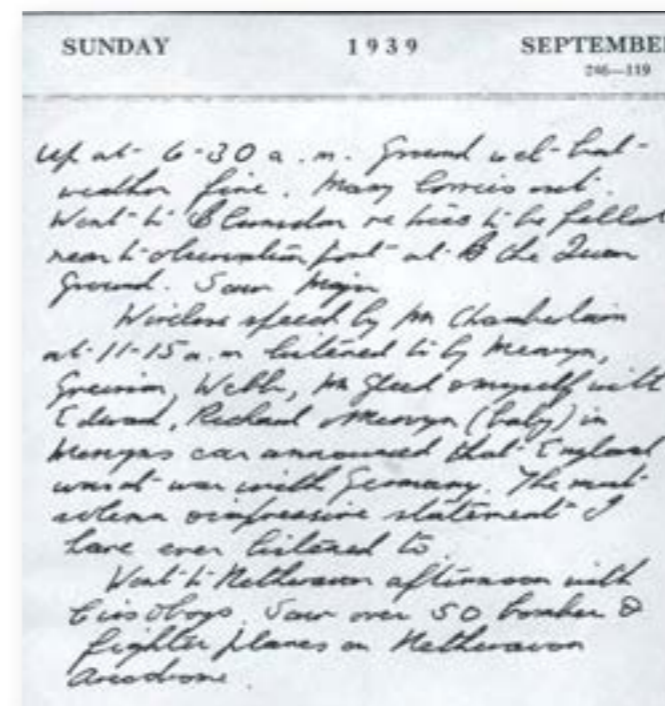 SUNDAY 1939 SEPTEMBE
246—119
up at 6-30 a.m. Ground wet but
weather fine. Many lorries out.
Went to Blunsdon re trees to be felled
near to observation post at B the
Ground. Saw Major
Wireless speech by Mr Chamberlain
at 11-15 a.m listened to by Mervyn,
Webb, Mr Gleed & myself with
Edward, Richard & Mervyn (baby) in
Mervyns car announced that England
was at war with Germany. The most
solemn & impressive statement I
have ever listened to
Went to Netheravon afternoon with
& boys. Saw over 50 bomber &
fighter planes on Netheravon
Aerodrome.